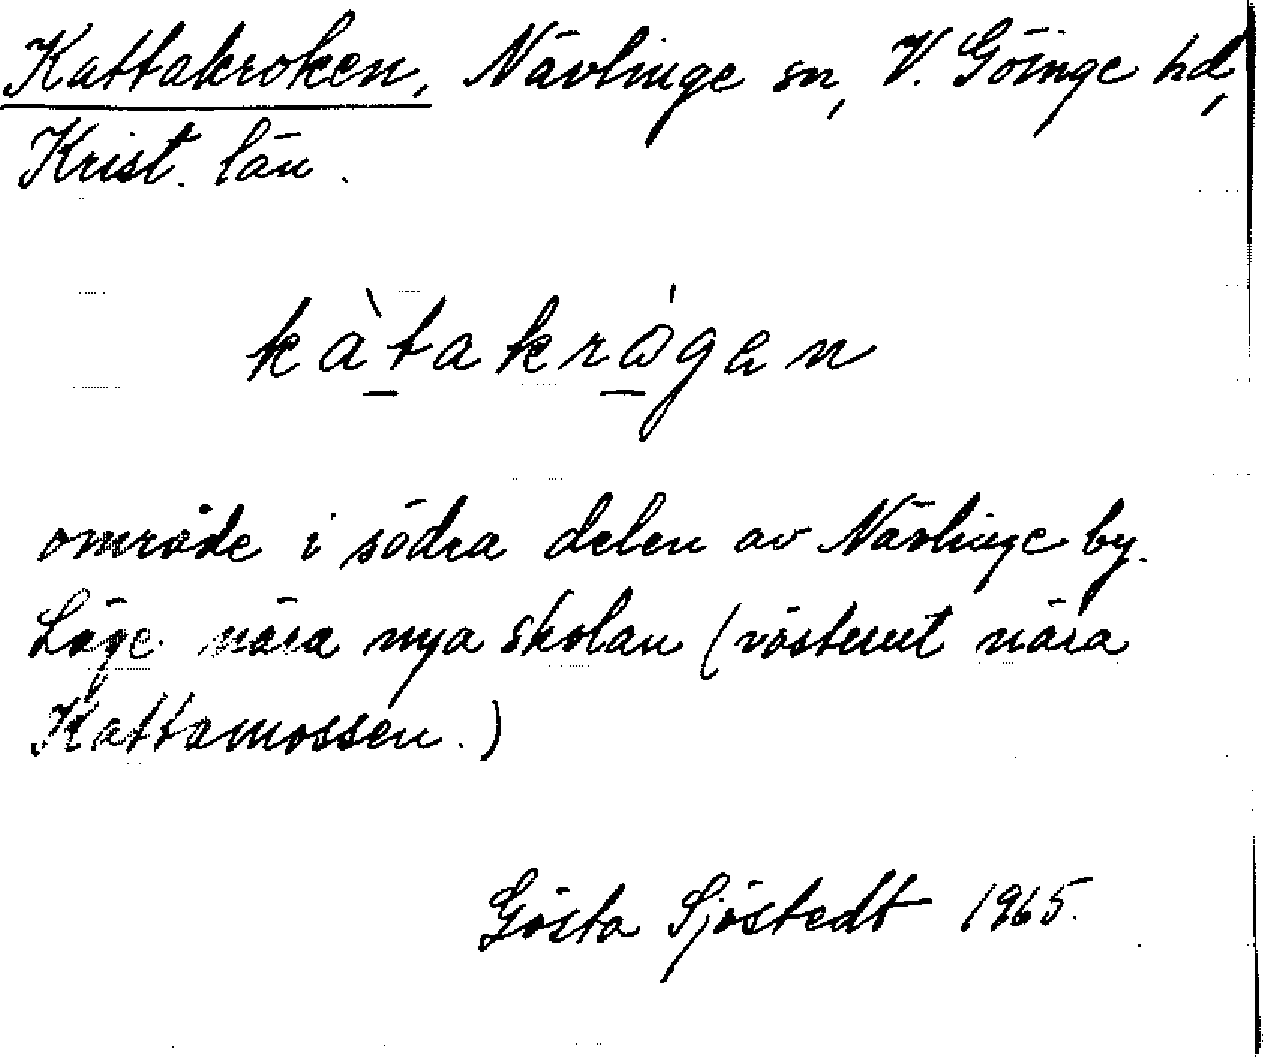 Kattakroken, Nävlinge sn, V. Göinge hd,
Krist. län.
kàt̲akró̲gen
område i södra delen av Nävlinge by.
Läge nära nya skolan (västerut nära
Kattamossen.)
Gösta Sjöstedt 1965.